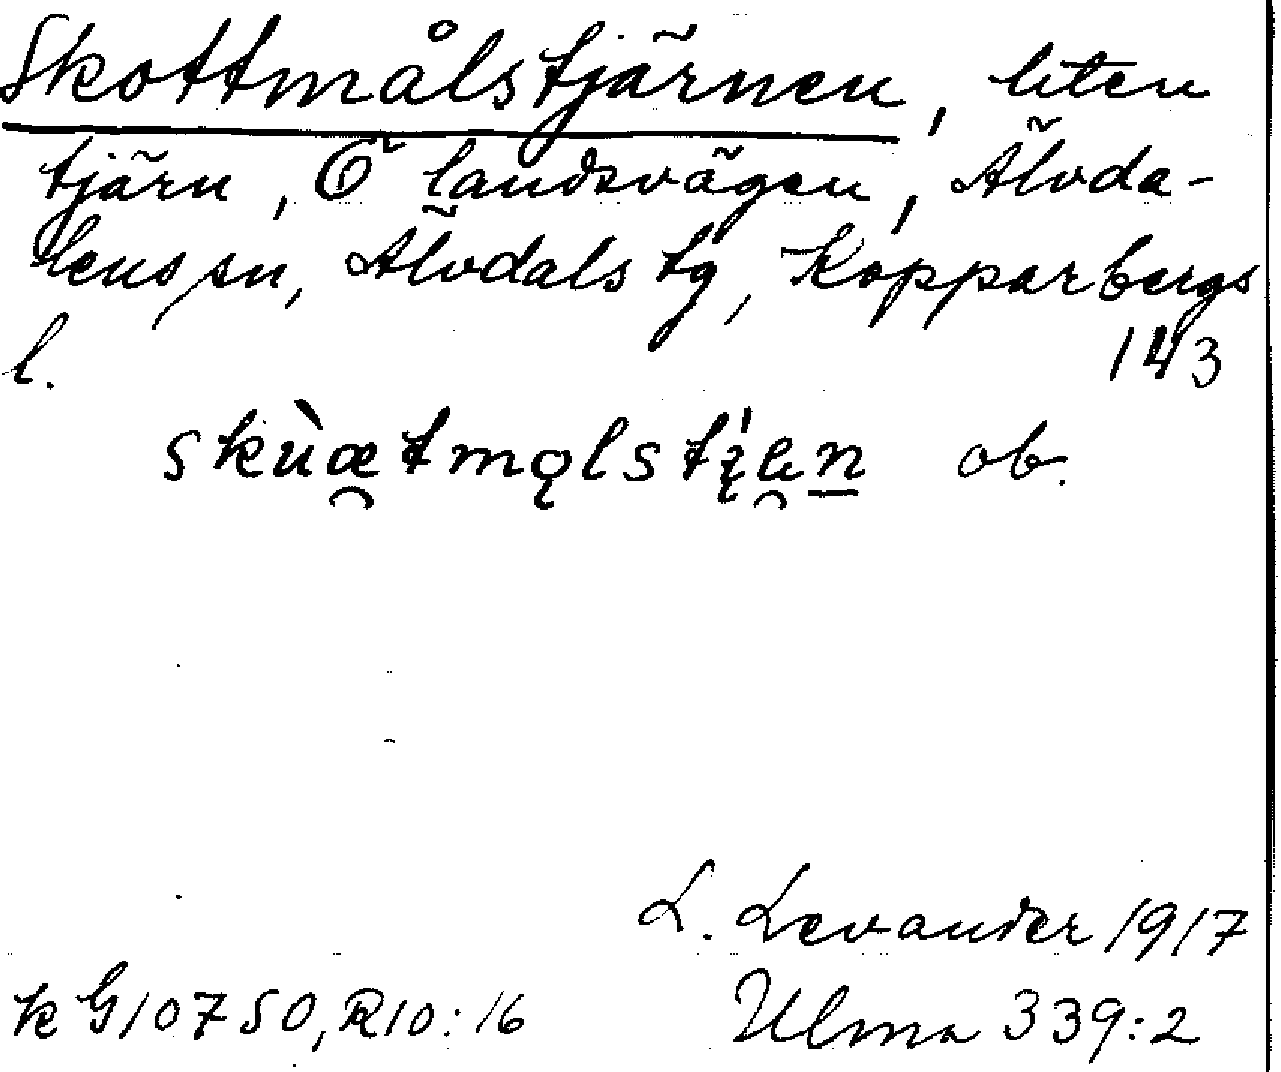 Skottmålstjärnen, liten
tjärn, Ö landsvägen, Älvda-
lens sn, Älvdals tg, Kopparbergs
l. 143
skùæ̯tmǫlstį̍en̲ ob.
L. Levander 1917
k G10750, R10:16 Ulma 339:2